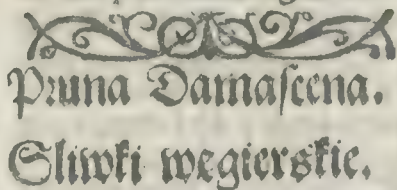 Pruna Damaſcena.
Sliwki wegierskie.